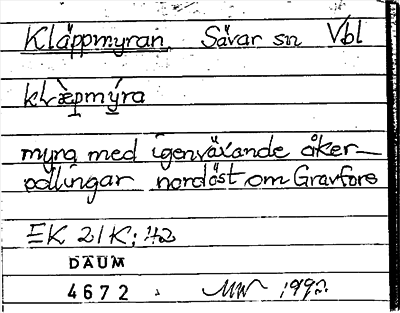 Kläppmyran Sävar sn Vbl
kLæpmýra
myra med igenväxande åker-
pollingar nordöst om Gravfors
EK 21K:42
DAUM
4672 . MW 1992